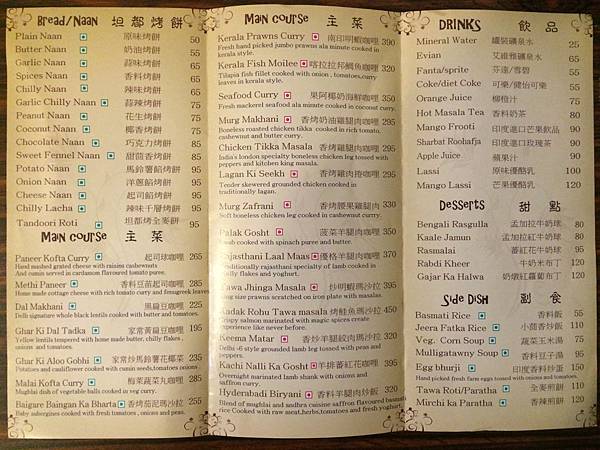 Bread/Naan 坦都烤餅
Plain Naan 原味烤餅 50
Butter Naan 奶油烤餅 55
Garlic Naan 蒜味烤餅 65
Spices Naan 香料烤餅 65
Chilly Naan 辣味烤餅 65
Garlic Chilly Naan 蒜辣烤餅 75
Peanut Naan 花生烤餅 75
Coconut Naan 椰香烤餅 75
Chocolate Naan 巧克力烤餅 85
Sweet Fennel Naan 甜茴香烤餅 85
Potato Naan 馬鈴薯餡烤餅 90
Onion Naan 洋蔥餡烤餅 90
Cheese Naan 起司餡烤餅 95
Chilly Lacha 辣味千層烤餅 95
Tandoori Roti 坦都烤全麥餅 95
Main course 主菜
Paneer Kofta Curry 起司球咖哩 265
Hand mashed grated cheese with raisins cashewnuts
And cumin served in cardamon flavoured tomato puree.
Methi Paneer 香料豆苗起司咖哩 285
Home made cottage cheese with rich tomato curry and fenugreek leaves
Dal Makhani 黑扁豆咖哩 210
Delhi signature whole black lentils cooked with butter and tomatoes
Ghar Ki Dal Tadka 家常黃扁豆咖哩 195
Yellow lentils tempered with home made butter, chilly flakes,
onions and tomatoes
Ghar Ki Aloo Gobhi 家常炒馬鈴薯花椰菜 235
Potatoes and cauliflower cooked with cumin seeds, tomatoes and onion
Malai Kofta Curry 椰菜蔬菜丸咖哩 285
Mughlai dish of vegetable balls cooked in veg curry.
Baigare Baingan Ka Bharta 香烤茄泥瑪沙拉 255
Baby aubergines cooked with fresh tomatoes, onions and peas.
Main course 主菜
Kerala Prawns Curry 南印明蝦咖哩 390
Fresh hand picked jumbo prawns ala minute cooked in
kerala style.
Kerala Fish Moilee 喀拉拉邦鯛魚咖哩 320
Tilapia fish fillet cooked with onion, tomatoes,curry
leaves in kerala style.
Seafood Curry 果阿椰奶海鮮咖哩 350
Fresh mackerel seafood ala minute cooked in coconut curry.
Murg Makhani 香烤奶油雞腿肉咖哩 320
Boneless roasted chicken tikka cooked in rich tomato,
cashewnut and butter curry.
Chicken Tikka Masala 香烤雞腿肉咖哩 320
India's london specialty boneless chicken leg tossed with
peppers and kitchen king masala.
Lagan Ki Seekh 香烤雞肉捲咖哩 320
Tender skewered grounded chicken cooked in
traditionally lagan.
Murg Zafrani 香烤腰果雞腿肉 330
Soft boneless chicken leg cooked in cashewnut curry.
Palak Gosht 菠菜羊腿肉咖哩 320
cooked with spinach puree and butter.
Rajasthani Laal Maas 優格羊腿肉咖哩 370
traditionally rajasthani specialty of lamb cooked in
chilly flakes and yoghurt.
Tawa Jhinga Masala 炒明蝦瑪沙拉 390
King size prawns scratched on iron plate with masalas.
Kadak Rohu Tawa masala 烤鮭魚瑪沙拉 450
Crispy salmon marinated with magic spices create
experience like never before.
Keema Matar 香炒羊腿絞肉瑪沙拉 320
Delhi -6 style grounded lamb leg tossed with peas and
peppers.
Kachi Nalli Ka Gosht 羊排蕃紅花咖哩 395
Overnight marinated lamb shank with onions and
saffron curry.
Hyderabadi Biryani 香料羊腿肉炒飯 320
Blend of mughlai and andhra cuisine saffron flavoured basmati
rice Cooked with raw meat,herbs,tomatoes and fresh yoghurt.
DRINKS 飲品
Mineral Water 罐裝礦泉水 25
Evian 艾維雅礦泉水 65
Fanta/sprite 芬達/雪碧 55
Coke/diet Coke 可樂/健怡可樂 55
Orange Juice 柳橙汁 75
Hot Masala Tea 香料奶茶 80
Mango Frooti 印度進口芒果飲品 90
Sharbat Roohafja 印度進口玫瑰茶 90
Apple Juice 蘋果汁 60
Lassi 原味優酪乳 100
Mango Lassi 芒果優酪乳 120
Desserts 甜點
Bengali Rasgulla 孟加拉牛奶球 60
Kaale Jamun 孟加拉紅牛奶球 60
Rasmalai 蕃紅花牛奶球 95
Rabdi Kheer 牛奶米布丁 60
Gajar Ka Halwa 奶燉紅蘿蔔布丁 160
Side Dish 副食
Basmati Rice 香料飯 55
Jeera Fatka Rice 小茴香炒飯 110
Veg. Corn Soup 蔬菜玉米湯 75
Mulligatawny Soup 香料豆子湯 95
Egg bhurji 印度香料炒蛋 150
Hand picked fresh farm eggs tossed with onions and tomatoes.
Tawa Roti/Paratha 全麥煎餅 110
Mirchi ka Paratha 香辣煎餅 110